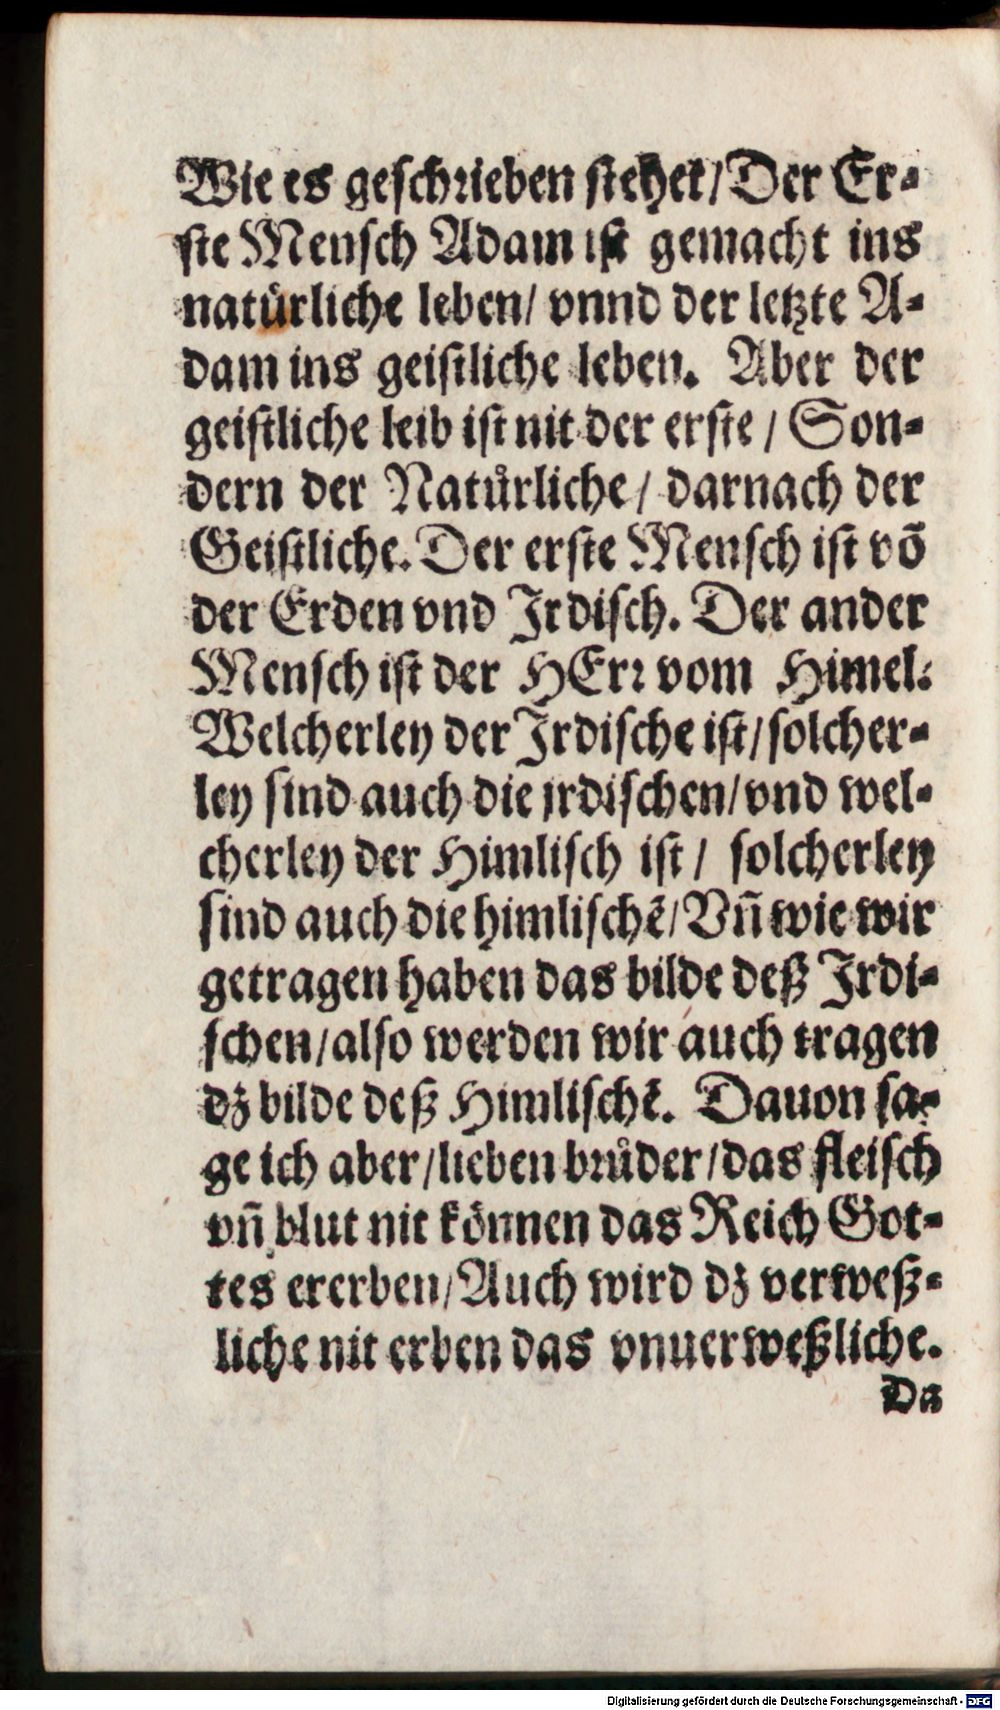 Wie es geschrieben stehet/ Der Er-
ste Mensch Adam ist gemacht ins
natürliche leben/ vnnd der letzte A-
dam ins geistliche leben. Aber der
geistliche leib ist nit der erste / Son-
dern der Natuͤrliche/ darnach der
Geistliche. Der erste Mensch ist võ
der Erden vnd Irdisch. Der ander
Mensch ist der HErr vom Himel:
Welcherley der Irdische ist/ solcher-
ley sind auch die irdischen/ vnd wel-
cherley der Himlisch ist / solcherley
sind auch die himlischẽ/ Vñ wie wir
getragen haben das bilde deß Irdi-
schen/ also werden wir auch tragen
dz bilde deß Himlischẽ. Dauon sa-
ge ich aber/ lieben bruͤder/ das fleisch
vñ blut nit können das Reich Got-
tes ererben/ Auch wird dz verweß-
liche nit erben das vnuerweßliche.
Da
Digitalisierung gefördert durch die Deutsche Forschungsgemeinschaft - DFG